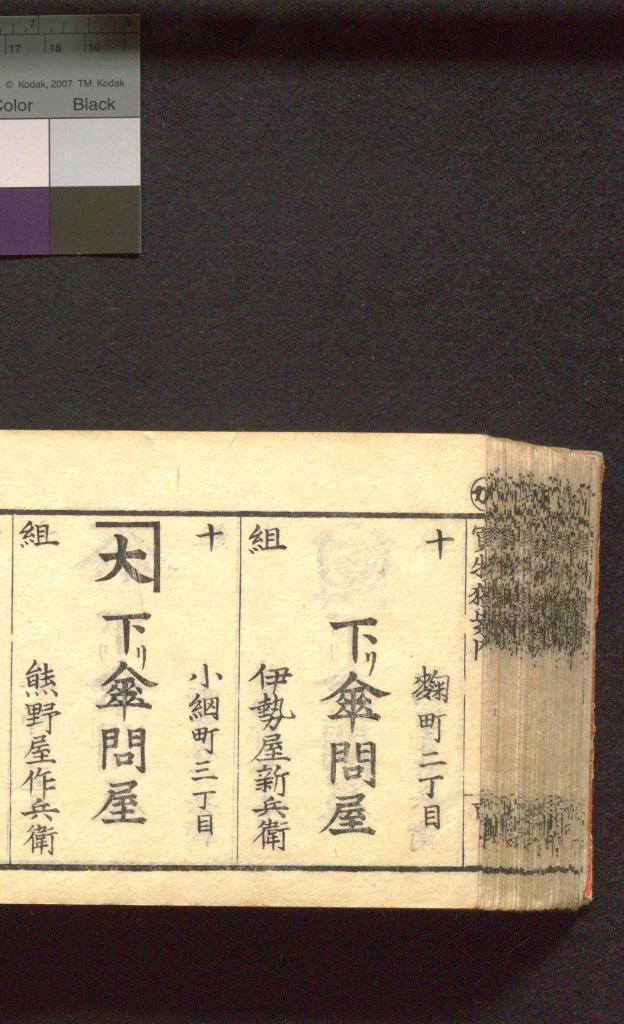 7
17 18 19
© Kodak, 2007 TM: Kodak
Color Black
十
麹町二丁目
下リ傘問屋
組
伊勢屋新兵衛
十
小網町三丁目
大
下リ傘問屋
組
熊野屋作兵衛